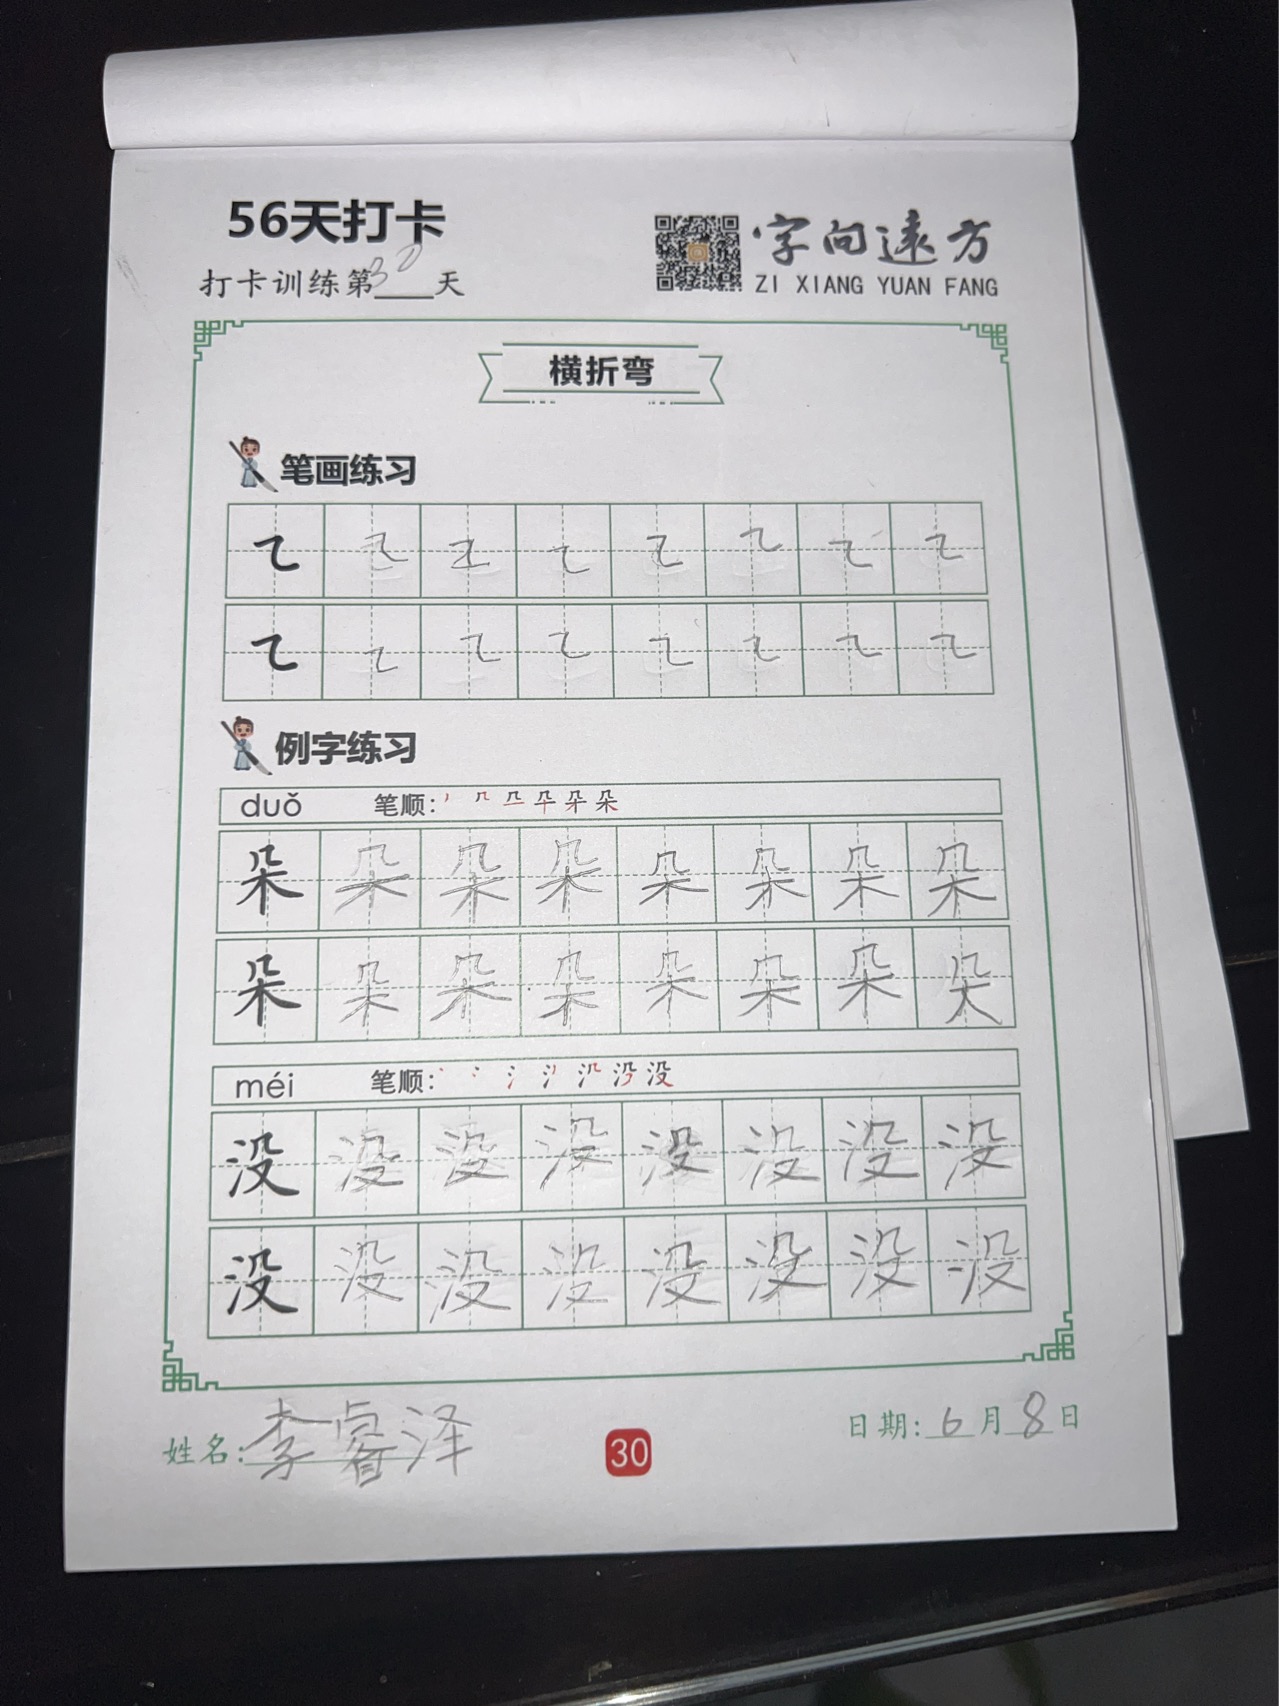 56天打卡
字向远方
打卡训练第30天
ZI XIANG YUAN FANG
横折弯
笔画练习
㇍ ㇍ ㇍ ㇍ ㇍ ㇍ ㇍ ㇍
㇍ ㇍ ㇍ ㇍ ㇍ ㇍ ㇍ ㇍
例字练习
duǒ 笔顺: 朵
朵 朵 朵 朵 朵 朵 朵 朵
朵 朵 朵 朵 朵 朵 朵 朵
méi 笔顺: 没
没 没 没 没 没 没 没 没
没 没 没 没 没 没 没 没
姓名: 李睿泽
30
日期: 6月8日